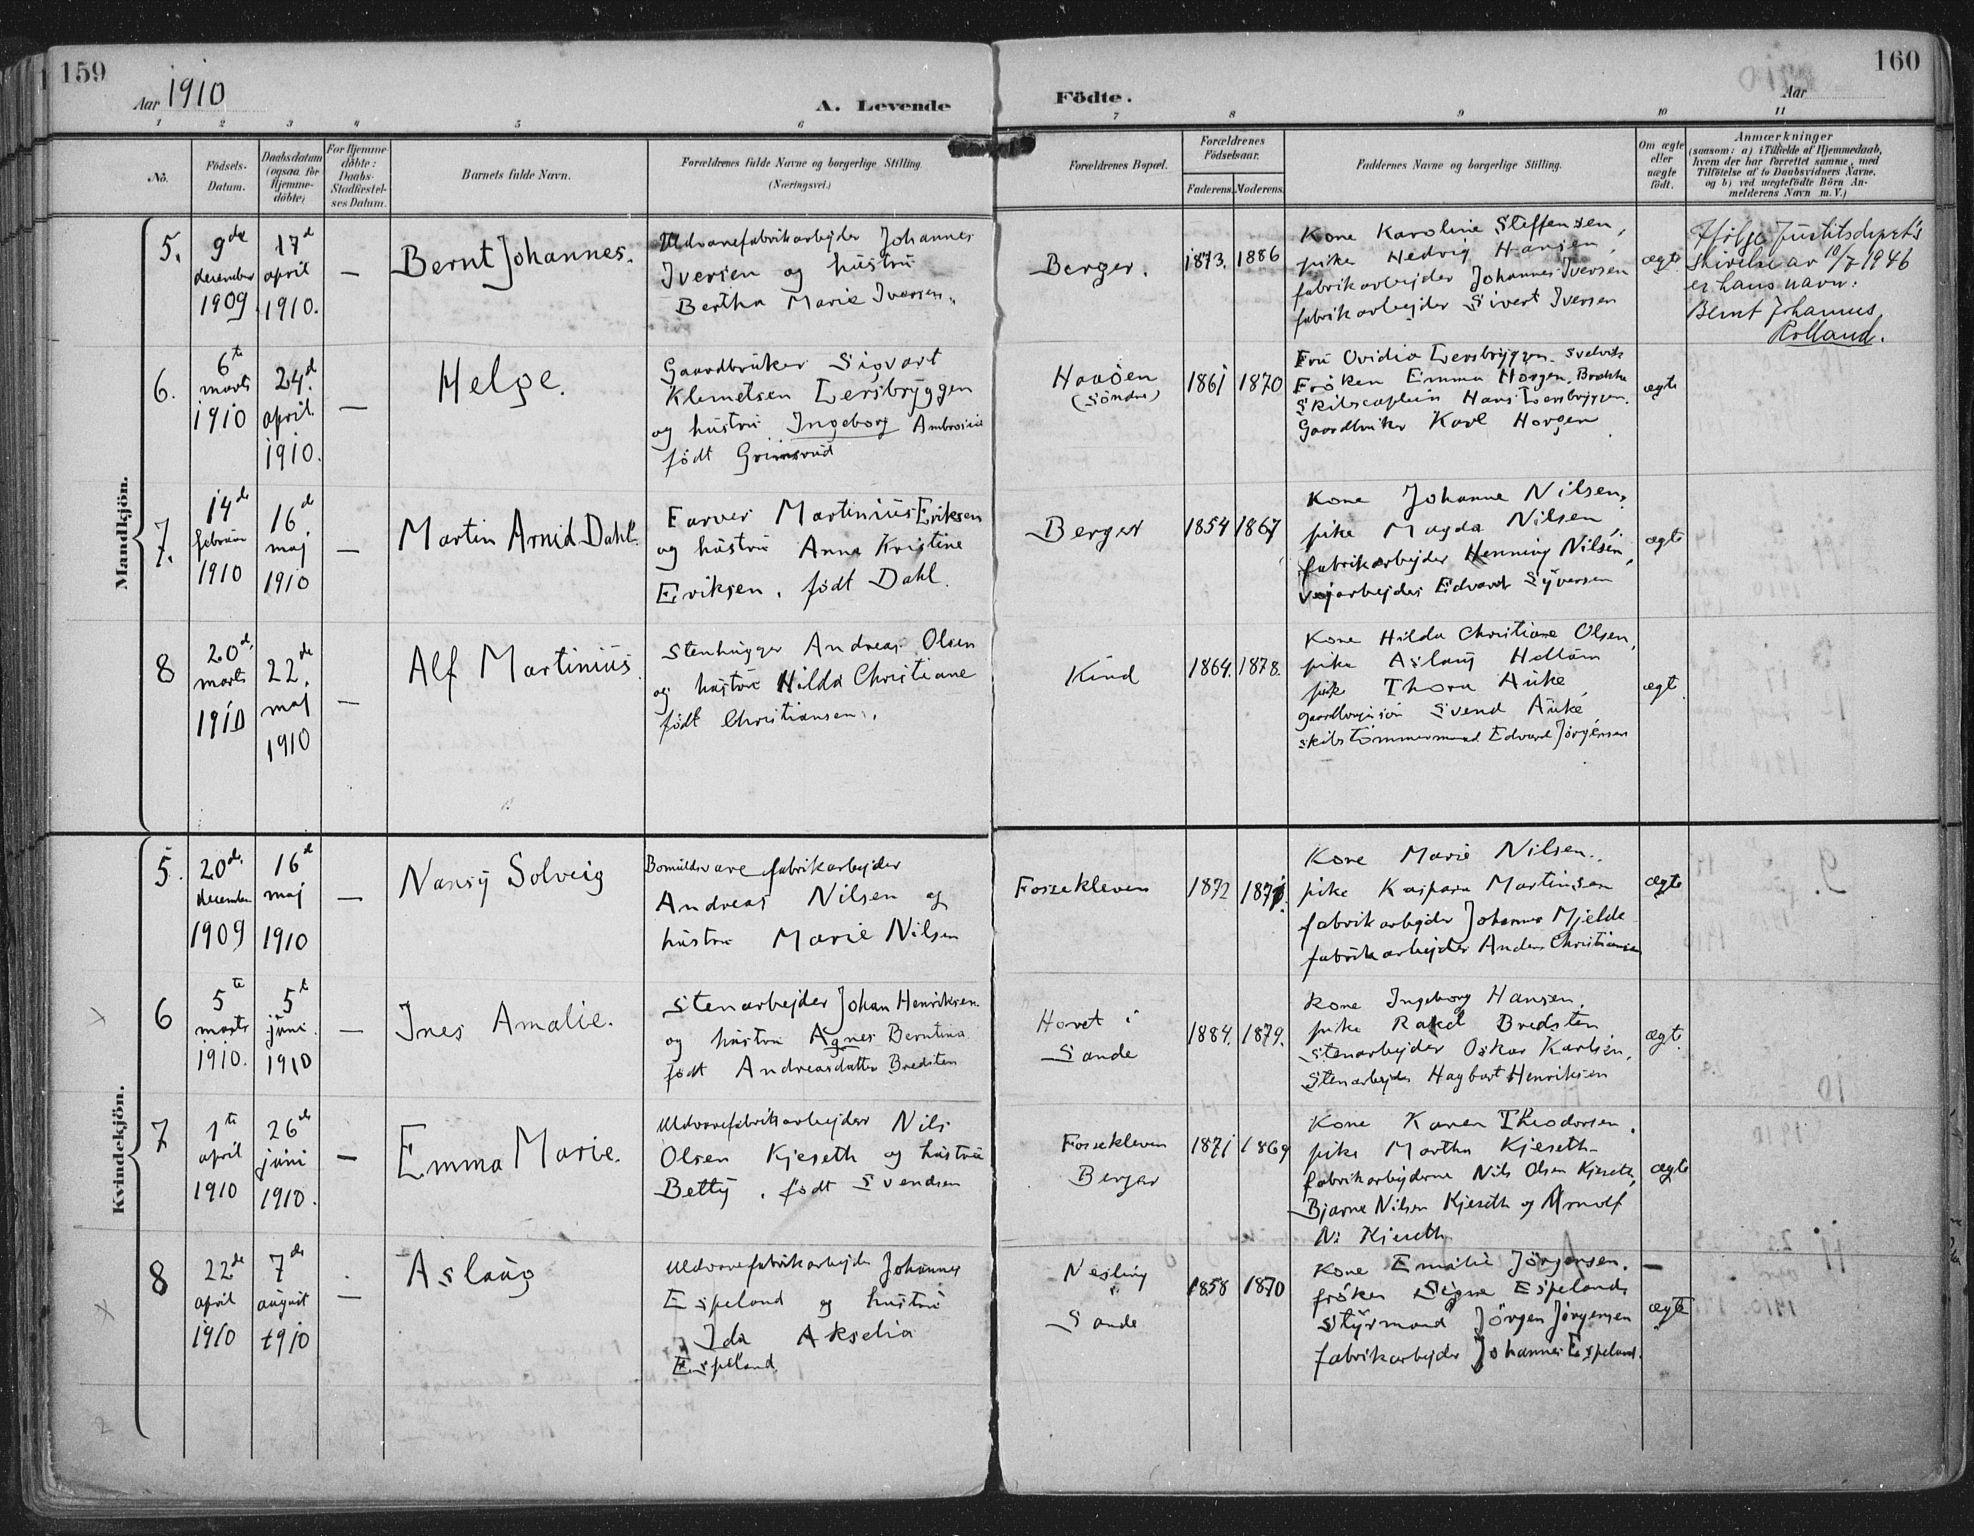 159
Aar 1910
A. Levende
Födte.
160
Aar
1 2 3 4 5 6 7 8 9 10 11
No.
Födsels-
Datum.
Daabsdatum
(ogsaa for
Hjemme-
döbte)
For Hjemme-
döbte:
Daabs-
Stadfæstel-
ses Datum.
Barnets fulde Navn.
Forældrenes fulde Navne og borgerlige Stilling.
(Næringsvei.)
Forældrenes Bopæl.
Forældrenes
Födselsaar.
Faderens. Moderens.
Faddernes Navne og borgerlige Stilling.
Om ægte
eller
uægte
födt.
Anmærkninger
(saasom: a) i Tilfælde af Hjemmedaab,
hvem der har forrettet samme, med
Tilföielse af to Daabsvidners Navne,
og b) ved uægtefödte Börn An-
melderens Navn m. V.)
Mandkjön.
5.
9de
december
1909
17d
april
1910.
—
Bernt Johannes.
Uldvarefabrikarbejder Johannes
Iversen og hustru
Bertha Marie Iversen.
Berger.
1873. 1886
Kone Karoline Steffensen,
pike Hedvig Hansen,
fabrikarbejder Johannes Iversen
fabrikarbejder Sivert Iversen
ægte
Ifölge justitsdepet's
skrivelse av 10/7 1946
er hans navn:
Bernt Johannes
Rolland.
6.
6te
marts
1910
24d.
april
1910.
—
Helge.
Gaardbruker Sigvart
Klemetsen Lersbryggen
og hustru Ingeborg Ambrosia
født Grimsrud
Haaöen
(Söndre)
1861 1870
Fru Ovidia Lersbryggen. Svelvik
Frøken Emma Horgen,
Skibscaptein Hans Lersbryggen.
Gaardbruker Karl Horgen
ægte
7.
14de
februar
1910
16d
maj
1910
—
Martin Arnid Dahl.
Farver Martinius Eriksen
og hustru Anna Kristine
Eriksen, født Dahl.
Berger
1854 1867
Kone Johanne Nilsen,
pike Magda Nilsen,
fabrikarbejder Henning Nilsen,
vejarbejder Edvard Syversen
ægte
8
20de
marts
1910
22de
maj
1910
—
Alf Martinius.
Stenhugger Andreas Olsen
og hustru Hilda Christiane
født Christiansen.
Kind
1864. 1878.
Kone Hilda Christiane Olsen,
pike Aslaug Hellum
pike Thora Auke,
Svend Auke
skibstømmermand Edvard Jörgensen
ægte
Kvindekjön.
5.
20de
december
1909
16d
maj
1910
—
Nansy Solveig
Bomuldsvarefabrikarbejder
Andreas Nilsen og
hustru Marie Nilsen
Fossekleven
1872
Kone Marie Nilsen.
pike Kaspara Martinsen
fabrikarbejder Johannes Mjelde
fabrikarbejder Anders Christiansen
ægte
x
6
5te
marts
1910.
5te
juni
1910
—
Ines Amalie.
Stenarbejder Johan Henriksen
og hustru Agnes Berntina
født Andreasdatter Bredsten
Hovet i
Sande
1884. 1879.
Kone Ingeborg Hansen,
pike Rakel Bredsten
Stenarbejder Oskar Karlsen,
Stenarbejder Hagbart Henriksen
ægte
7
1te
april
1910
26de
juni
1910.
—
Emma Marie.
Uldvarefabrikarbejder Nils
Olsen Kjeseth og hustru
Betty, født Svendsen
Fossekleven
Berger
1871 1869
Kone Karen Theodorsen.
pike Martha Kjeseth
fabrikarbejderne Nils Olsen Kjeseth,
Bjarne Nilsen Kjeseth og Arnolf
N. Kjeseth
ægte
x
8
22de
april
1910
7de
august
1910
—
Aslaug
Uldvarefabrikarbejder Johannes
Espeland og hustru
Ida Akselia
Espeland
Nesling
Sande
1858 1870
Kone Emilie Jörgensen.
frøken Signe Espeland,
Styrmand Jörgen Jörgensen
fabrikarbejder Johannes Espeland.
ægte
2